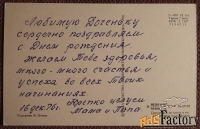 Любимую Доченьку
сердечно поздравляем
с Днем рождения
желаем Тебе здоровья,
много-много счастья и
успеха во всех Твоих
начинаниях.
16 дек 76г. Крепко целуем
Мама и Папа